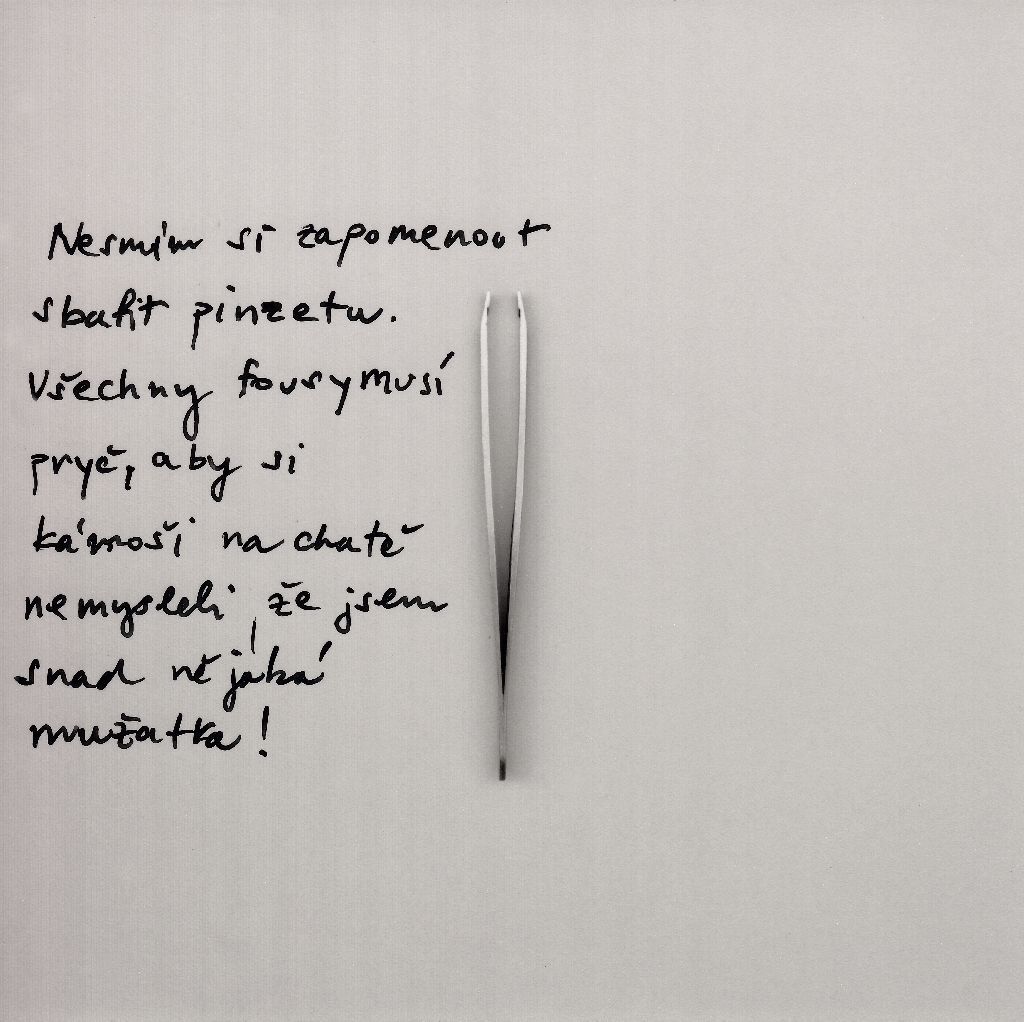 Nesmím si zapomenout
sbalit pinzetu.
Všechny fousy musí
pryč, aby si
kámoši na chatě
nemysleli, že jsem
snad nějaká
mužatka!